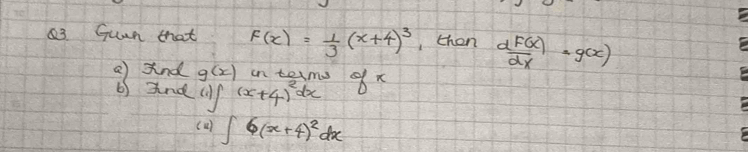 Q3 Given that F(x) = 1/3 (x+4)³, then dF(x)/dx = g(x)
a) Find g(x) in terms of x
b) Find (i) ∫ (x+4)² dx
(ii) ∫ 6(x+4)² dx